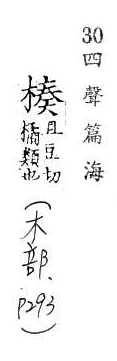 30四聲篇海
楱且豆切
橘類也
(木部、
P293)